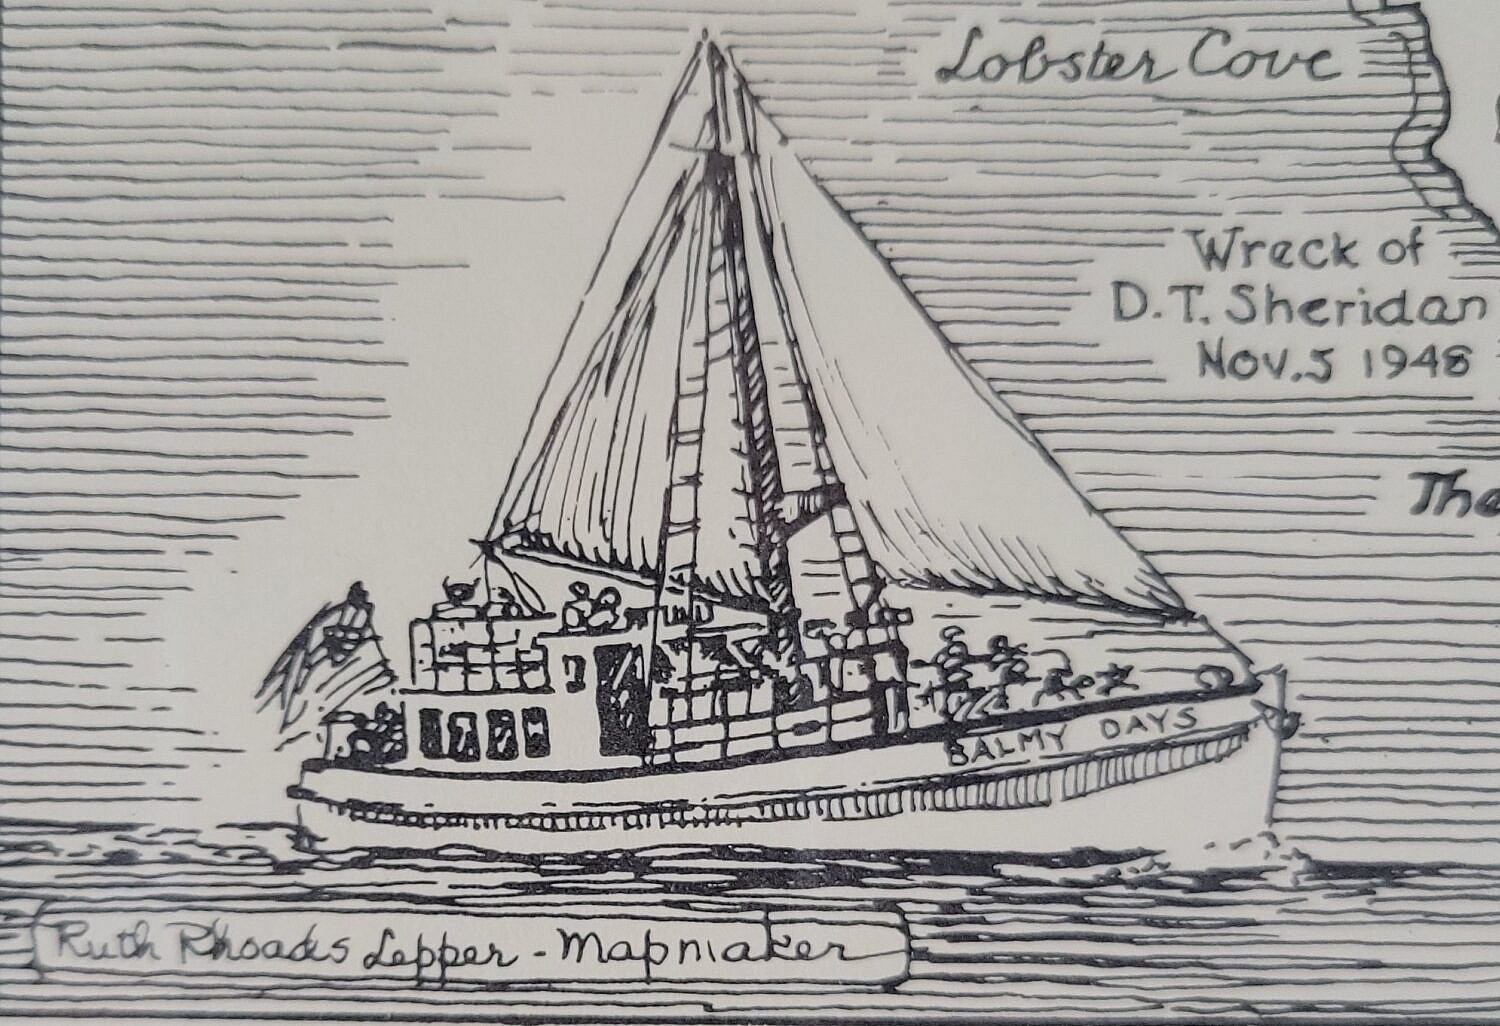 Lobster Cove
Wreck of
D.T. Sheridan
Nov. 5 1948
The
BALMY DAYS
Ruth Rhoads Lepper - Mapmaker